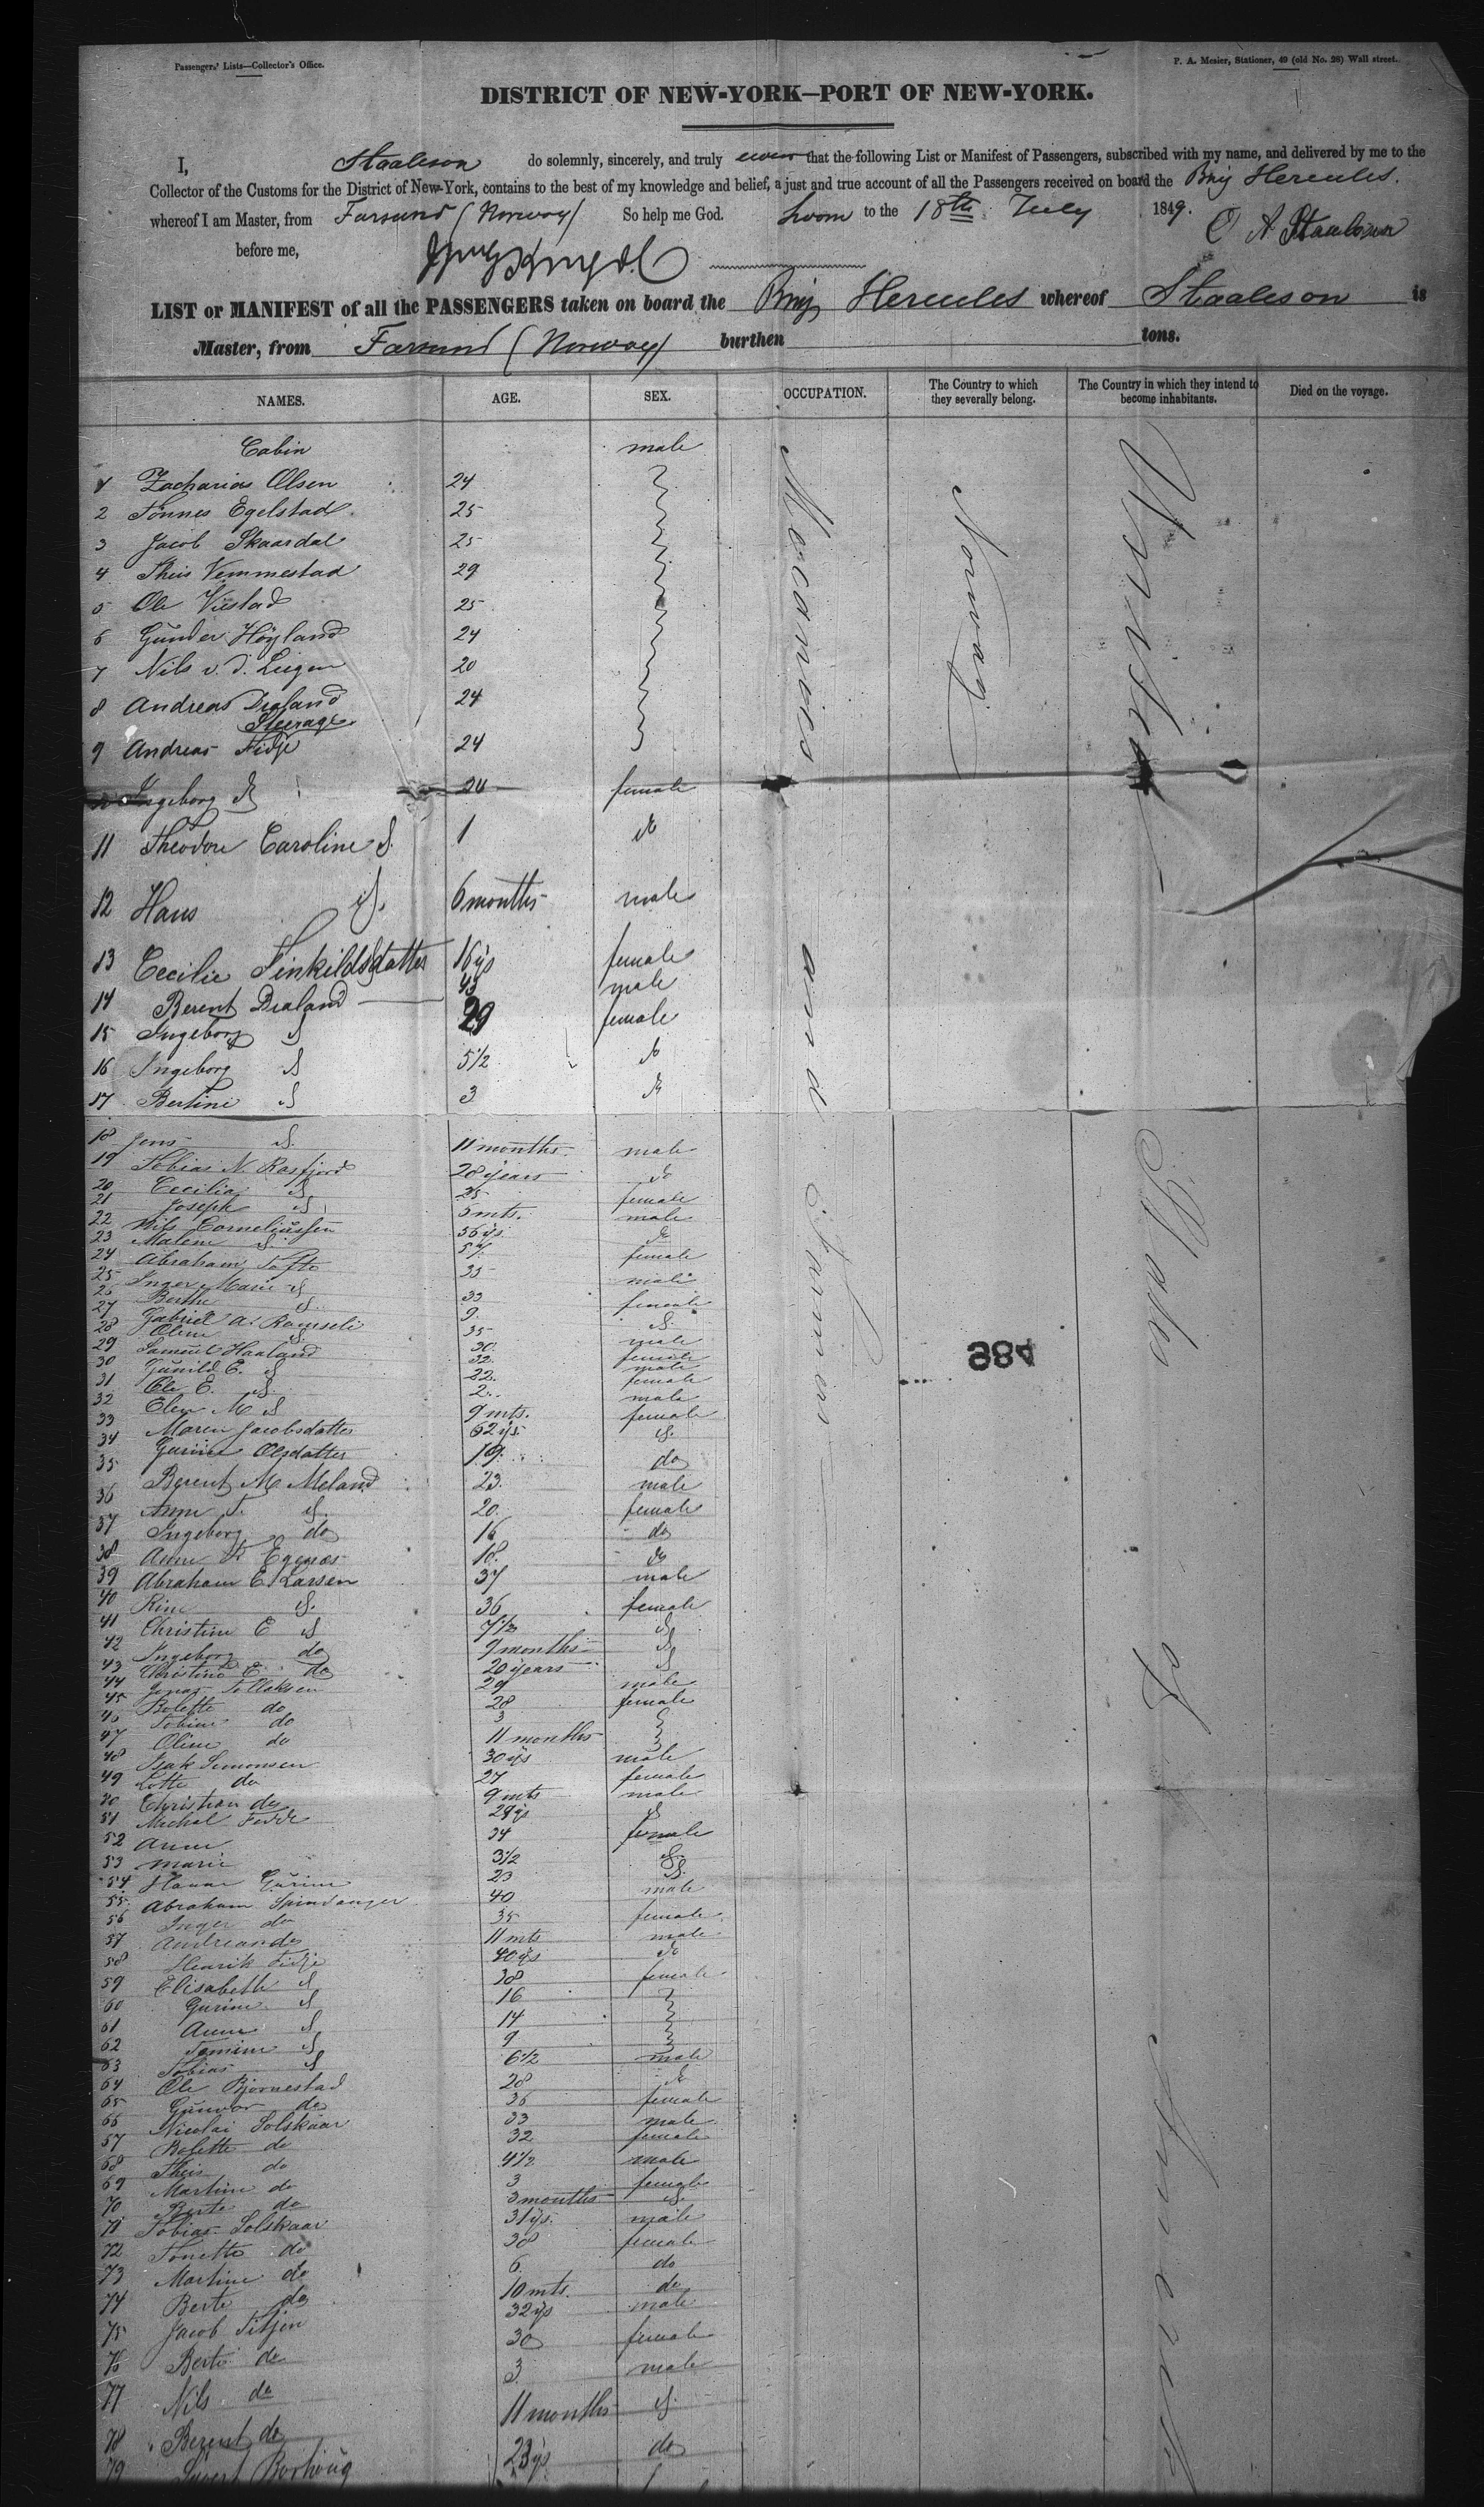 Passengers' Lists—Collector's Office.
P. A. Mesier, Stationer, 49 (old No. 28) Wall street.
DISTRICT OF NEW-YORK—PORT OF NEW-YORK.
I, Staaleson do solemnly, sincerely, and truly swear that the following List or Manifest of Passengers, subscribed with my name, and delivered by me to the
Collector of the Customs for the District of New-York, contains to the best of my knowledge and belief, a just and true account of all the Passengers received on board the Brig Hercules.
whereof I am Master, from Farsund (Norway) So help me God. Sworn to the 18th July 1849.
before me,
LIST or MANIFEST of all the PASSENGERS taken on board the Brig Hercules whereof Staaleson is
Master, from Farsund (Norway) burthen tons.
NAMES. AGE. SEX. OCCUPATION. The Country to which they severally belong. The Country in which they intend to become inhabitants. Died on the voyage.
Cabin male
1 Zacharias Olsen 24
2 Tönnes Egelstad 25
3 Jacob Skaardal 25
4 Theis Vemmestad 29
5 Ole Viestad 25
6 Gunder Höyland 24
7 Nils v. d. Leigen 20
8 Andreas Draland 24
Steerage
9 Andreas Fidje 24
Ingeborg d 24 female
11 Theodore Caroline d. 1 do
12 Hans d. 6 months male
13 Cecilie Tinkildsdatter 16 ys female
14 Berent Draland 43 male
15 Ingeborg d 29 female
16 Ingeborg d 5 1/2 do
17 Bertine d 3 do
18 Jens d. 11 months male
19 Tobias N. Rasfjord 28 years do
20 Cecilia d 25 female
21 Joseph d 5 mts. male
22 Nils Corneliussen 56 ys. do
23 Malene d. 57 female
24 Abraham Tofte 35 male
25 Inger Marie d 33 female
26 Berthe d. 9. d.
27 Gabriel A. Ramseli 35 male
28 Oline d. 30. female
29 Samuel Haaland 32. male
30 Gunild E. d 22. female
31 Ole E. d. 2. male
32 Elen M d 9 mts. female
33 Maren Jacobsdatter 62 ys. d.
34 Gurine Olsdatter 19. do
35 Berent M Meland 23. male
36 Anne T. d. 20. female
37 Ingeborg do 16 do
38 Anne T Egenes 18. do
39 Abraham E. Larsen 37 male
40 Rine d. 36 female
41 Christine E d 7 1/2 d
42 Ingeborg do 9 months d
43 Christine E. do 20 years d
44 Jonas Tollaksen 29 male
45 Bolette do 28 female
46 Tobine do 3
47 Oline do 11 months
48 Isak Simonsen 30 ys male
49 Lotte do 27 female
50 Christian do 9 mts male
51 Michal Fedde 29 ys d
52 Anne 34 female
53 Marie 3 1/2 d.
54 Hanne Gurine 23 d.
55 Abraham Spindanger 40 male
56 Inger do 35 female
57 Andreas do 11 mts male
58 Henrik Fidje 40 ys do
59 Elisabeth d 38 female
60 Gurine d 16
61 Anne d 14
62 Tomine d 9
63 Tobias d 6 1/2 male
64 Ole Bjornestad 28 do
65 Gunvor do 36 female
66 Nicolai Solskaar 33 male
67 Bolette do 32 female
68 Theis do 4 1/2 male
69 Martine do 3 female
70 Berte do 3 months d.
71 Tobias Solskaar 31 ys. male
72 Tonette do 38 female
73 Martine do 6 do
74 Berte do 10 mts. do
75 Jacob Titjen 32 ys male
76 Berte do 30 female
77 Nils do 3 male
78 Berent do 11 months d.
79 Sivert Borhoug 23 ys do
Mecanics and Farmers
Norway
United States of America
384